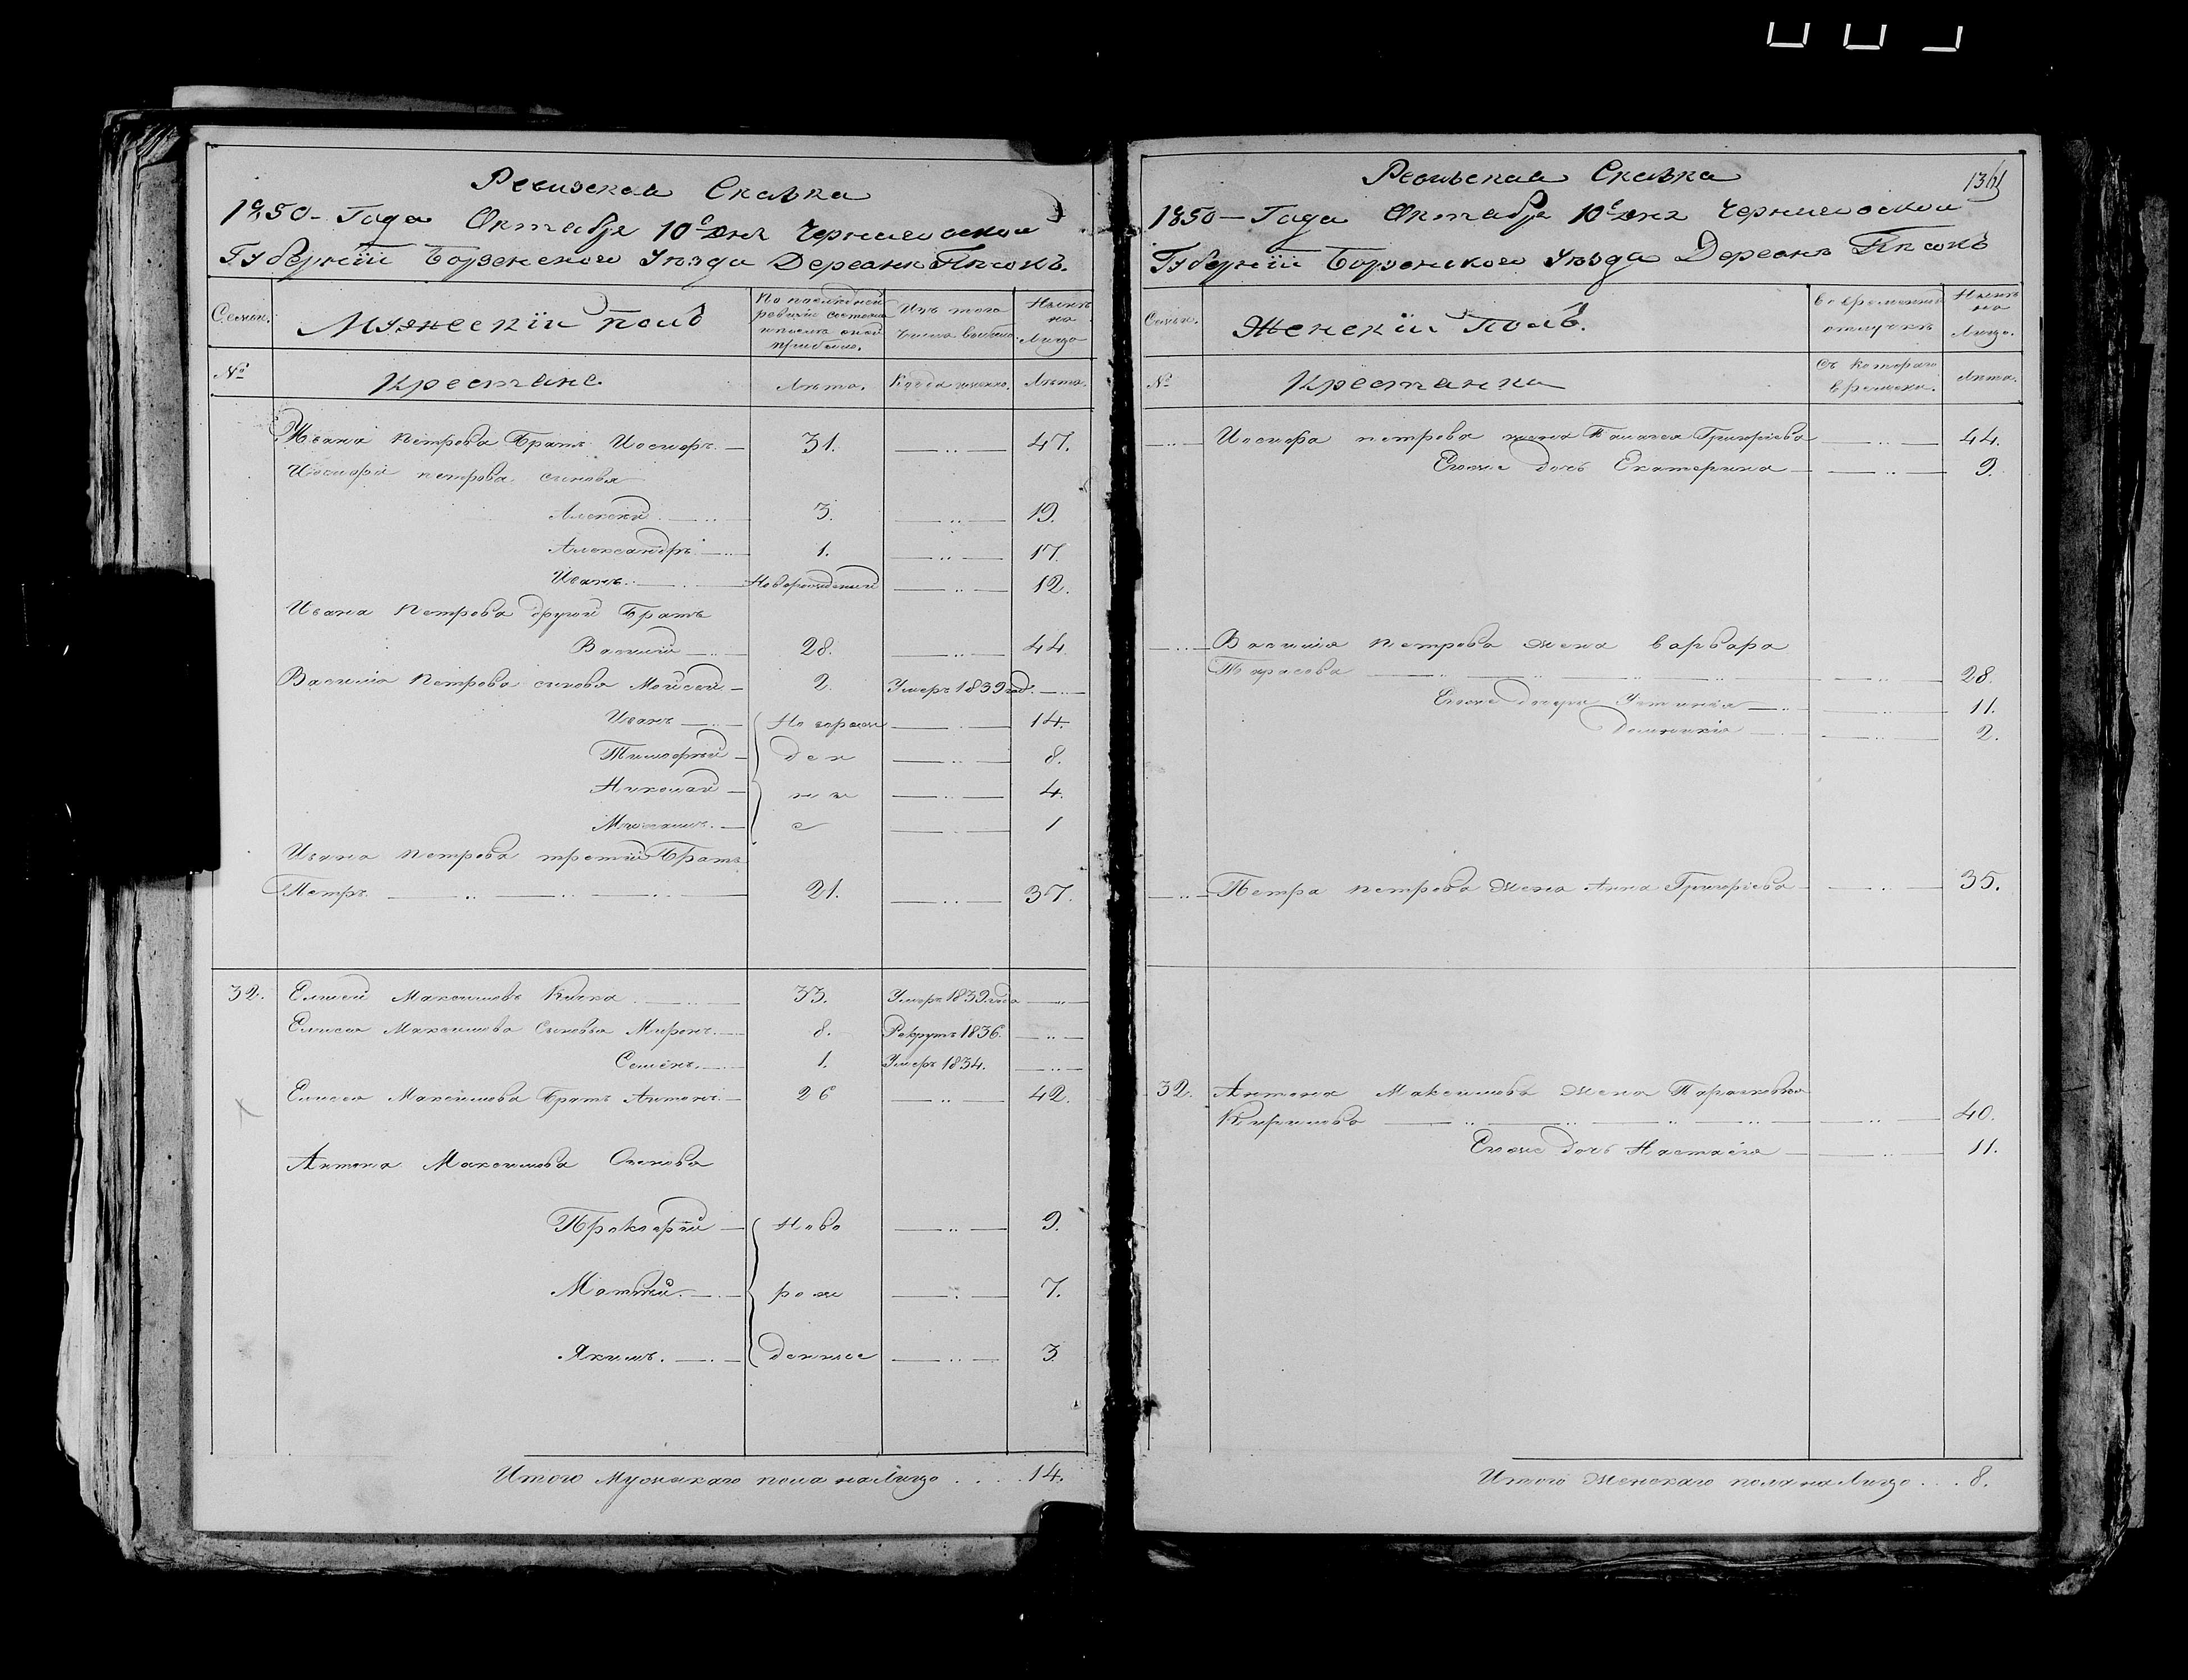 Ревизская Сказка
1850 – Года Октября 10го дня Черниговской
Губернiи Борзенского Уезда Деревни Пѣсокъ.
Семьи.
Мужескiй полъ
По последней ревизiи состояло и после оной прибыло.
Изъ того числа выбыло.
Ныне на Лицо
№
Крестьяне.
Лѣта.
Когда именно.
Лѣта.
Ивана Петрова Братъ Иосифъ. 31. 47.
Иосифа петрова сыновья
Алексей 3. 19.
Александръ 1. 17.
Иванъ. Новорожденый 12.
Ивана Петрова другой Братъ
Василiй 28. 44.
Василiя Петрова сыновя Мойсей 2. Умеръ 1839 год.
Иванъ Новорож 14.
Тимофѣй ден 8.
Николай ны 4.
Михаилъ. е 1
Ивана Петрова третiй Братъ
Петръ. 21. 37.
32. Елисей Максимовъ 33. Умеръ 1839. года
Елисея Максимова Сыновья Миронъ. 8. Рекрутъ 1836.
Семёнъ. 1. Умеръ 1834.
Елисея Максимова Братъ Антонъ. 26 42.
Антона Максимова Сынова
Прокофiй Ново 9.
Матвѣй. рож 7.
Якимъ. денные 3
Итого Мужскаго пола на Лицо . . . . 14.
Ревизская Сказка
1850 – Года Октября 10го дня Черниговской
Губернiи Борзенского Уезда Деревнѣ Пѣсокъ
Семьи.
Женскiй Полъ.
во временной отлучкѣ
Ныне на Лицо.
№
Крестьянки
Съ которого времени.
Лѣта.
Иосифа петрова жена Григорiева 44.
Егоже дочь Екатерина 9.
Василiя Петрова жена варвара
Тарасова 28.
Егоже дочери Устинiя 11.
Домникiя 2.
Петра Петрова жена Анна Григорiева 35.
32. Антона Максимова жена Парасковiя
Кирилова 40.
Егоже дочь Настасiя 11.
Итого женскаго пола на Лицо . . . 8.